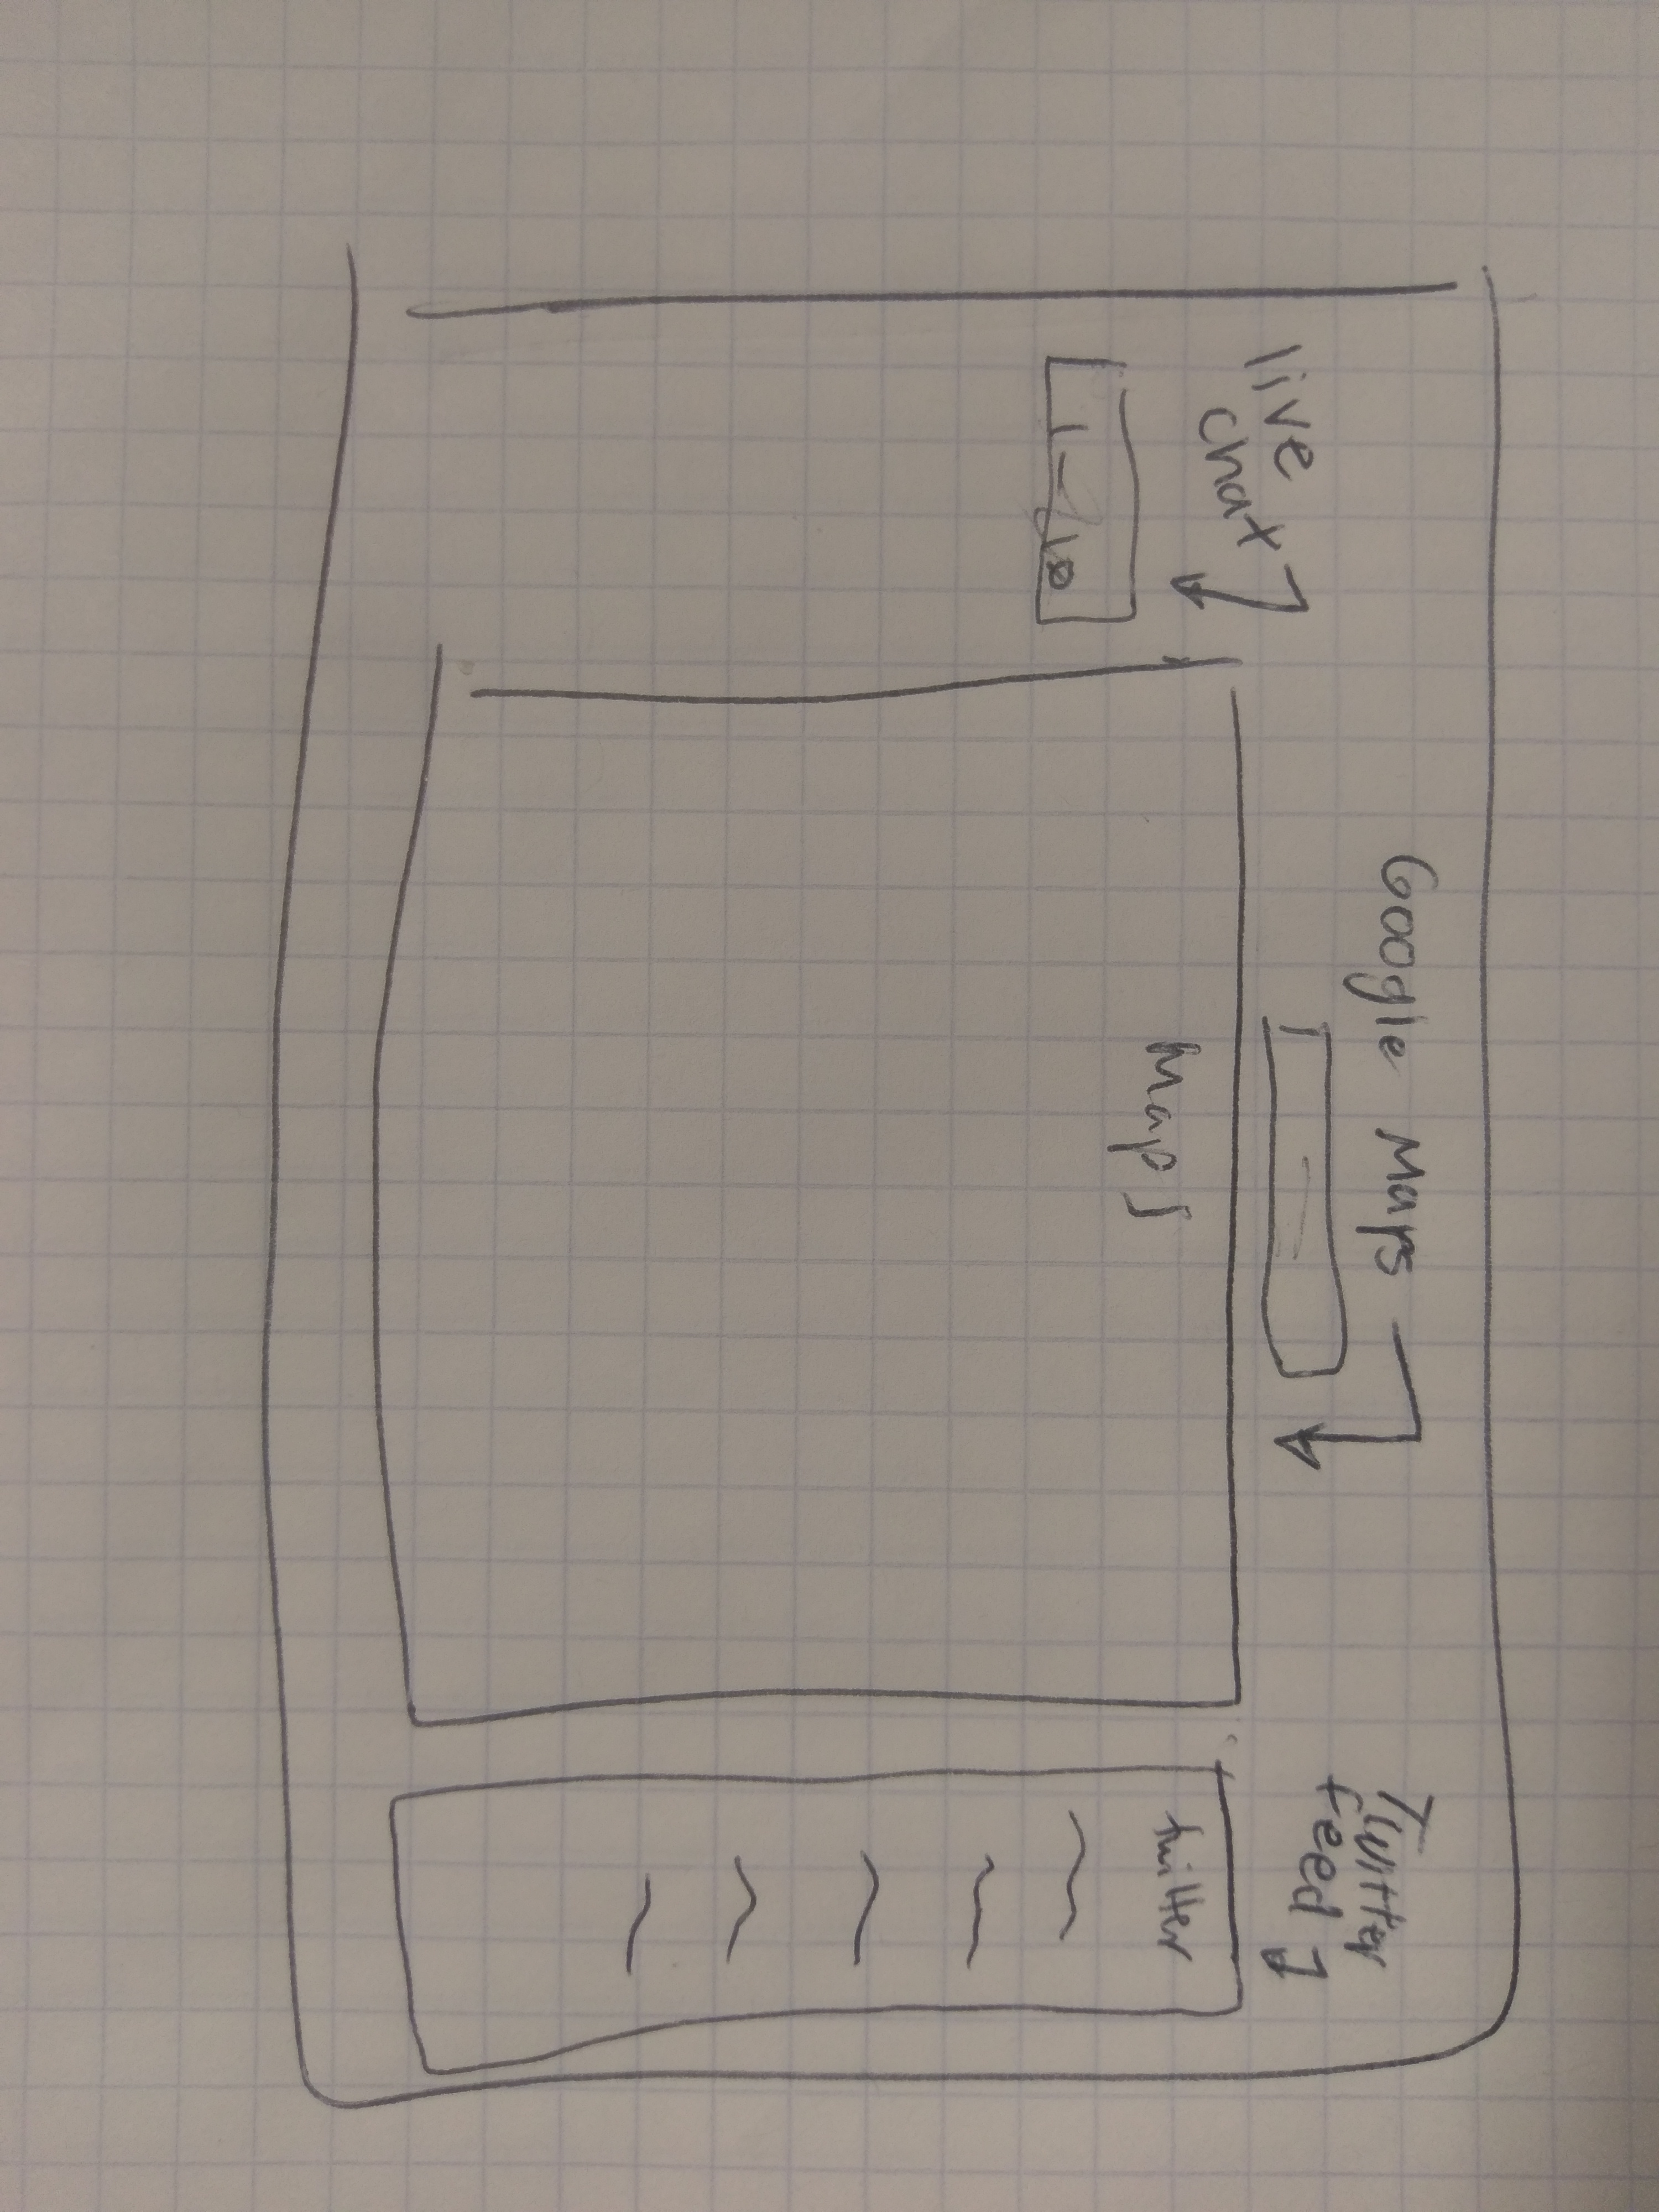 live
chat
Google Maps
Twitter
feed
Maps
twitter